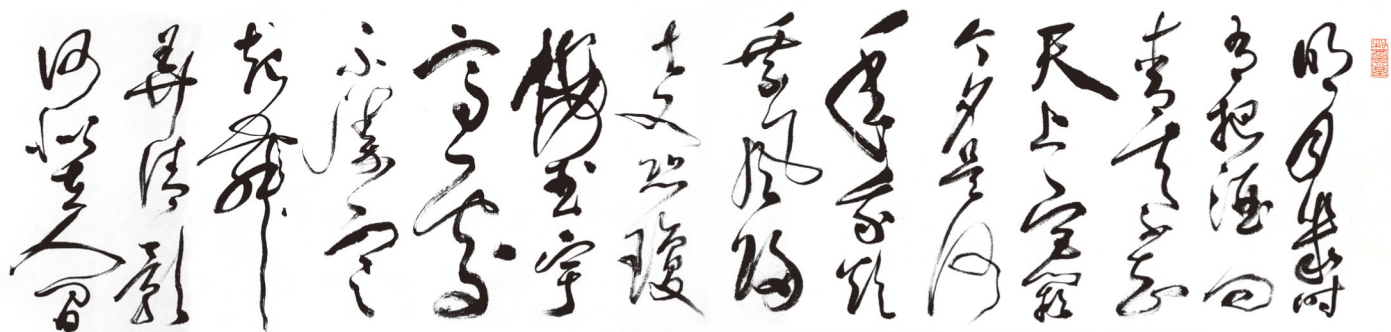 明月幾时
有把酒问
青天不知
天上宫闕
今夕是何
年我欲
乘风归
去又恐瓊
楼玉宇
高處
不勝寒
起舞
弄清影
何似在人间